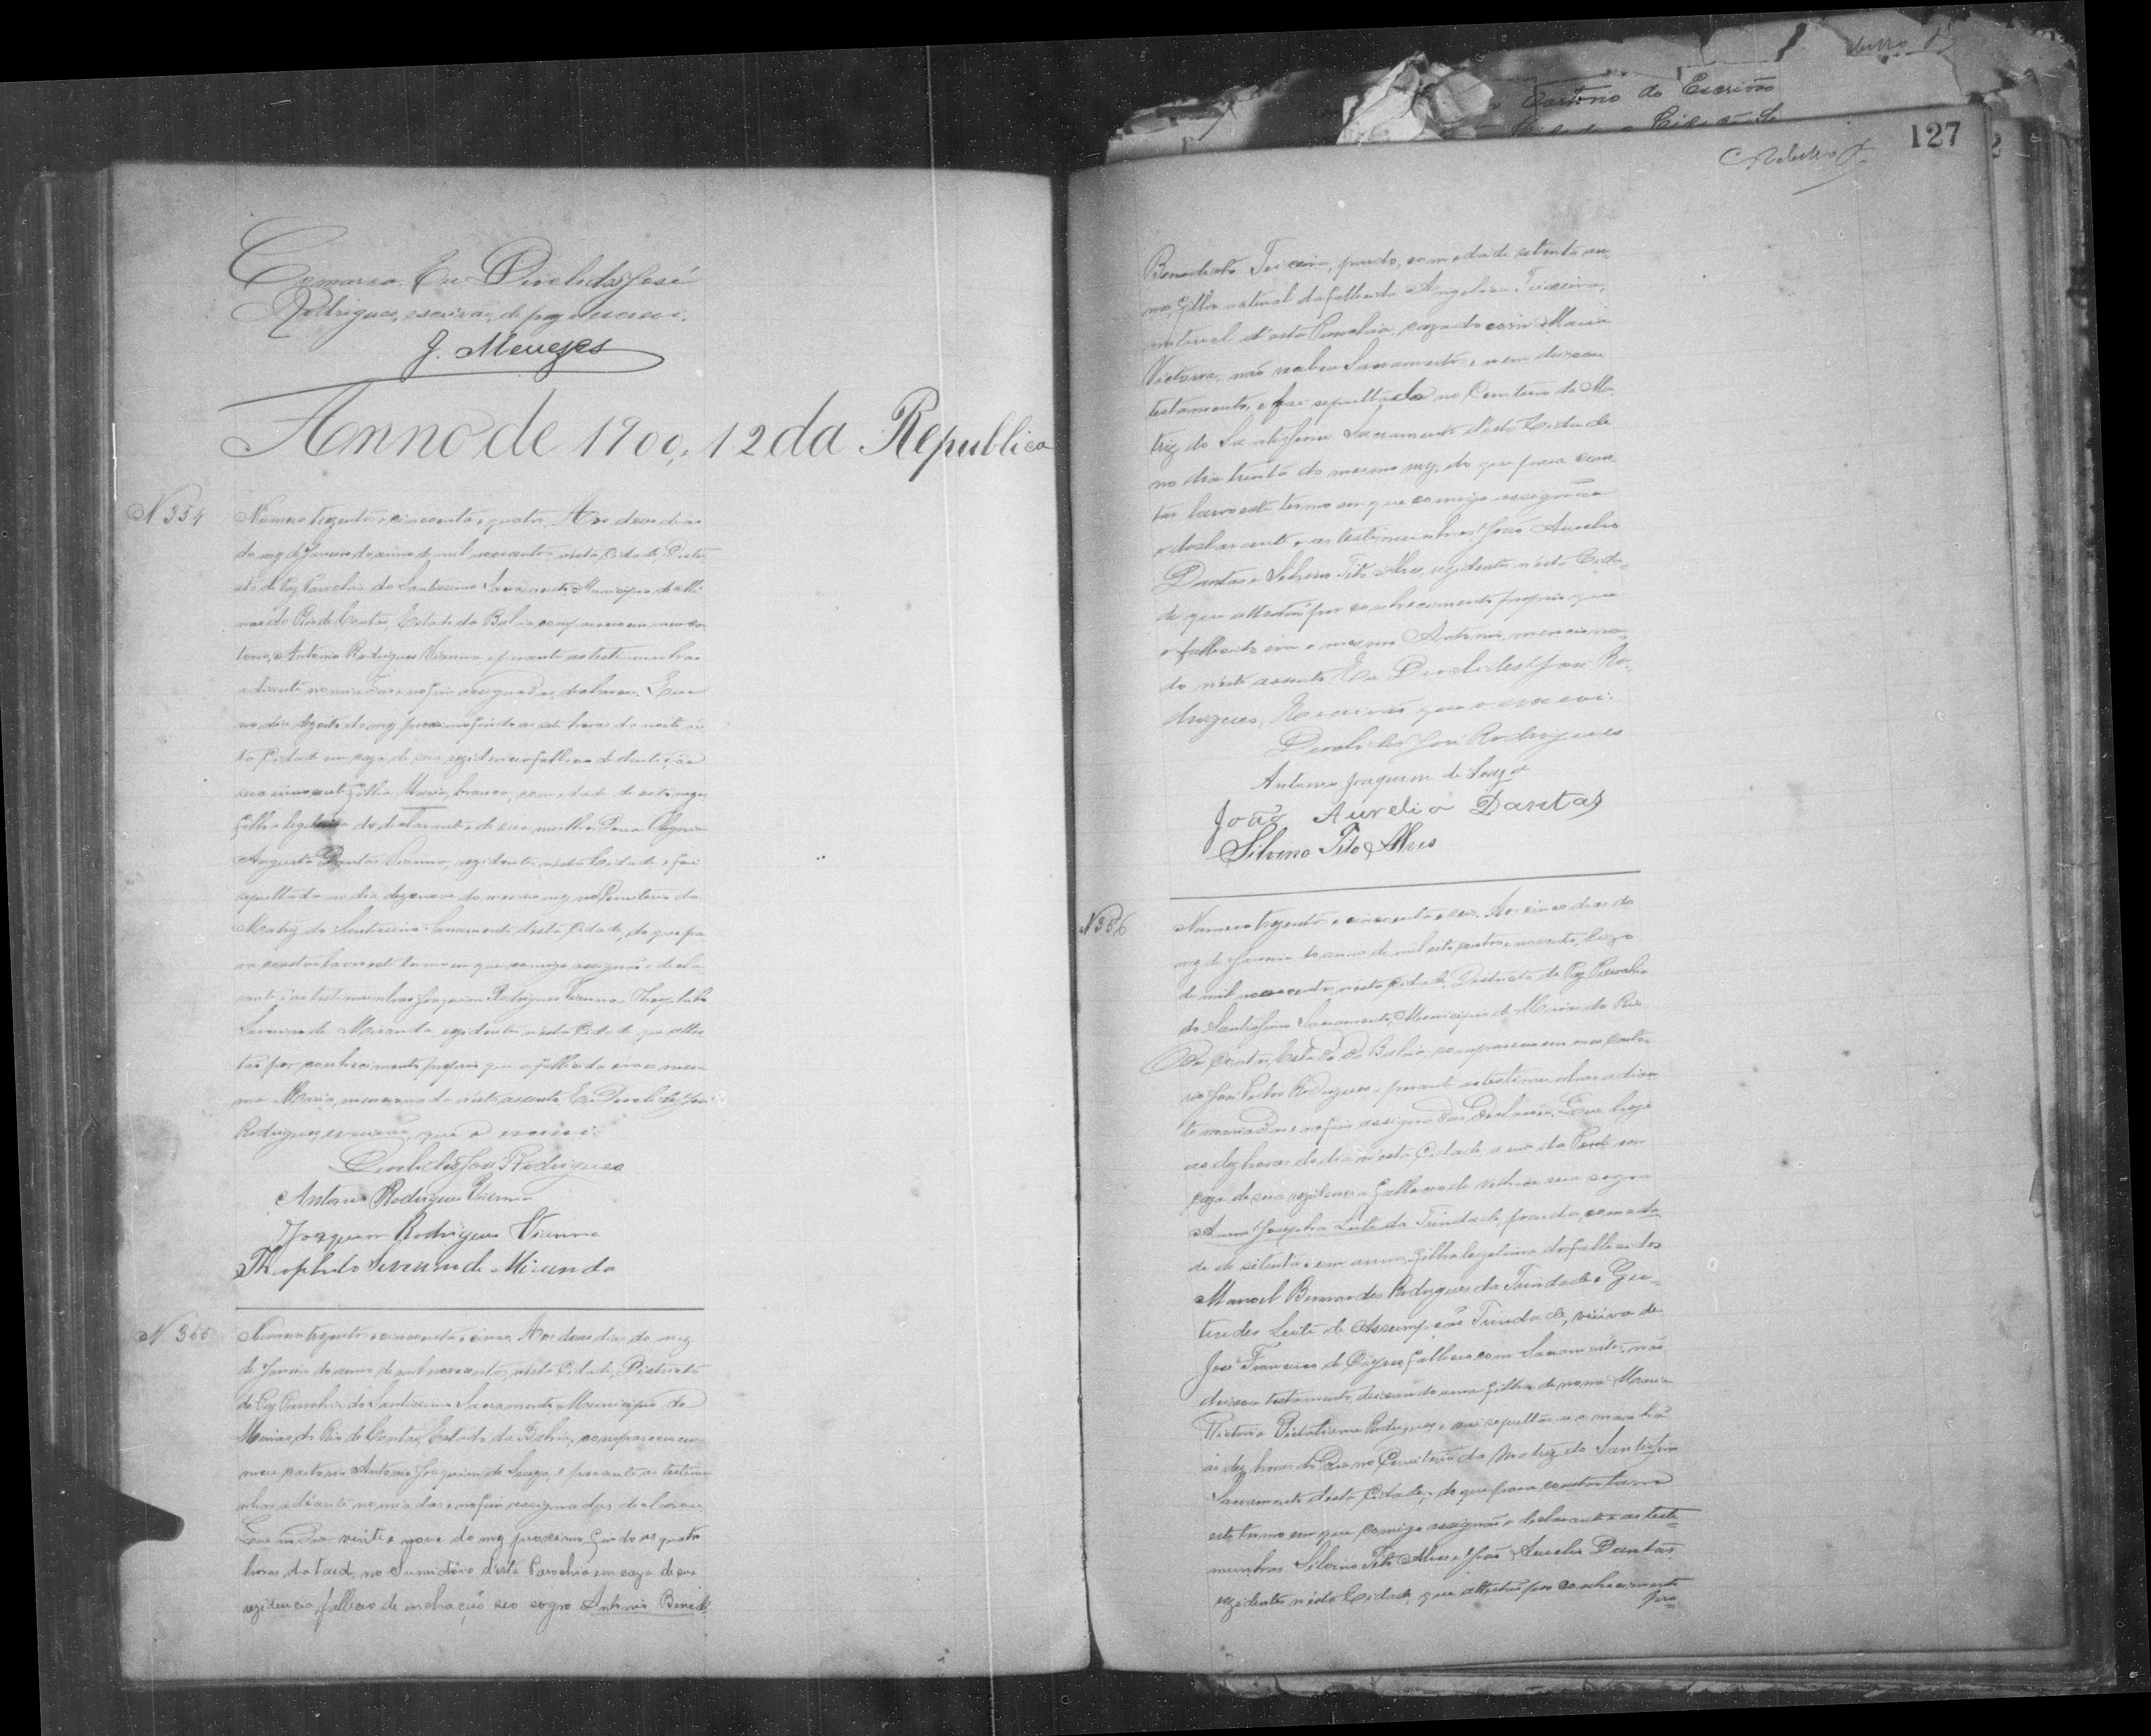 Comarca. Eu Diocletides José
Rodrigues, escrivão de paz o escrevi.
J. Menezes
Anno de 1900, 12 da Republica
N 354
Numero trezentos e cincoenta e quatro. Aos dous dias
do mez de Janeiro do anno de mil novecentos, nesta Cidade, Distri-
cto de Paz Parochia do Santissimo Sacramento, Municipio de Mi-
nas do Rio de Contas, Estado da Bahia, compareceu em meu car-
torio, Antonio Rodrigues Vianna e perante as testemunhas
adiante nomiadas e no fim assignadas, declarou: Que
no dia dezoito do mez proximo findo as sete horas da noite, nes-
ta Cidade em caza de sua rezidencia falleceu de dentição
sua innocente filha Maria, branca, com idade de oito mezes
filha legitima do declarante e de sua mulher Dona
Augusta Dantas Vianna, rezidentes nesta Cidade e foi
sepultada no dia dezenove do mesmo mez no Cemiterio da
Matriz do Santissimo Sacramento desta Cidade, do que pa-
ra constar lavro este termo em que comigo assignão o decla-
rante e as testemunhas Joaquim Rodrigues Vianna e Theophilo
Severino de Miranda rezidentes nesta Cidade que attes-
tão por conhecimento proprio que a fallecida era a mes-
ma Maria, mencionada neste assento. Eu Diocletides José
Rodrigues, escrivão, que o escrevi.
Diocletides José Rodrigues
Antonio Rodrigues Vianna
Joaquim Rodrigues Vianna
Theophilo Severino de Miranda
N. 355
Numero trezentos e cincoenta e cinco. Aos dous dias do mez
de Janeiro do anno de mil novecentos, nesta Cidade, Districto
de Paz Parochia do Santissimo Sacramento, Municipio de
Minas do Rio de Contas, Estado da Bahia, compareceu em
meu cartorio Antonio Joaquim de Souza, e perante as testemu-
nhas adiante nomiadas e no fim assignadas, declarou:
Que no dia vinte e nove do mez proximo findo as quatro
horas da tarde, no Sumidôro desta Parochia em caza de sua
rezidencia, falleceu de inchação seo sogro Antonio Benedi-
127
Benedicto Teixeira, pardo, com idade de setenta an-
nos, filho natural da fallecida Angelica Teixeira,
natural d'esta Parochia, cazado com Maria
Victoria, não recebeu Sacramentos, e nem deixou
testamento, e foi sepultado no Cemiterio da Ma-
triz do Santissimo Sacramento d'esta Cidade
no dia trinta do mesmo mez, do que para cons-
tar lavro este termo em que comigo assignão
o declarante e as testimunhas João Aurelio
Dantas e Silvino Tito Alves, rezidentes n'esta Cida-
de que attestão por conhecimento proprio que
o fallecido era o mesmo Antonio, menciona-
do n'este assento. Eu Diocletides José Ro-
drigues, Escrivão que o escrevi.
Diocletides José Rodrigues
Antonio Joaquim de Souza
João Aurelio Dantas
Silvino Tito Alves
N 356
Numero trezentos e cincoenta e seis. Aos cinco dias do
mez de Janeiro do anno de mil oito centos e noventa, digo
de mil novecentos, nesta Cidade, Districto de Paz, Parochia
do Santissimo Sacramento, Municipio de Minas do Rio
de Contas, Estado da Bahia, compareceu em meu Carto-
rio José Rodrigues e perante as testimunhas adian-
te nomiadas e no fim assignadas, declarou: Que hoje
as dez horas do dia n'esta Cidade, a rua da em
caza de sua rezidencia falleceu de velhice sua sogra
Anna Josepha Leite da Trindade, parda, com ida-
de de setenta e um annos, filha legitima dos fallecidos
Manoel Bernardes Rodrigues da Trindade e Ger-
trudes Leite de Assumpção Trindade, viuva de
José Francisco de falleceu com Sacramentos, não
deixou testamento, deixando uma filha de nome Maria
Victoria Rodrigues, e vai sepultar-se a manhã
ás dez horas do dia no Cemiterio da Matriz do Santissimo
Sacramento desta Cidade; do que para constar lavro
este termo em que comigo assignão o declarante e as teste-
munhas Silvino Tito Alves e João Aurelio Dantas
rezidentes n'esta Cidade, que attestão por conhecimento
pro-